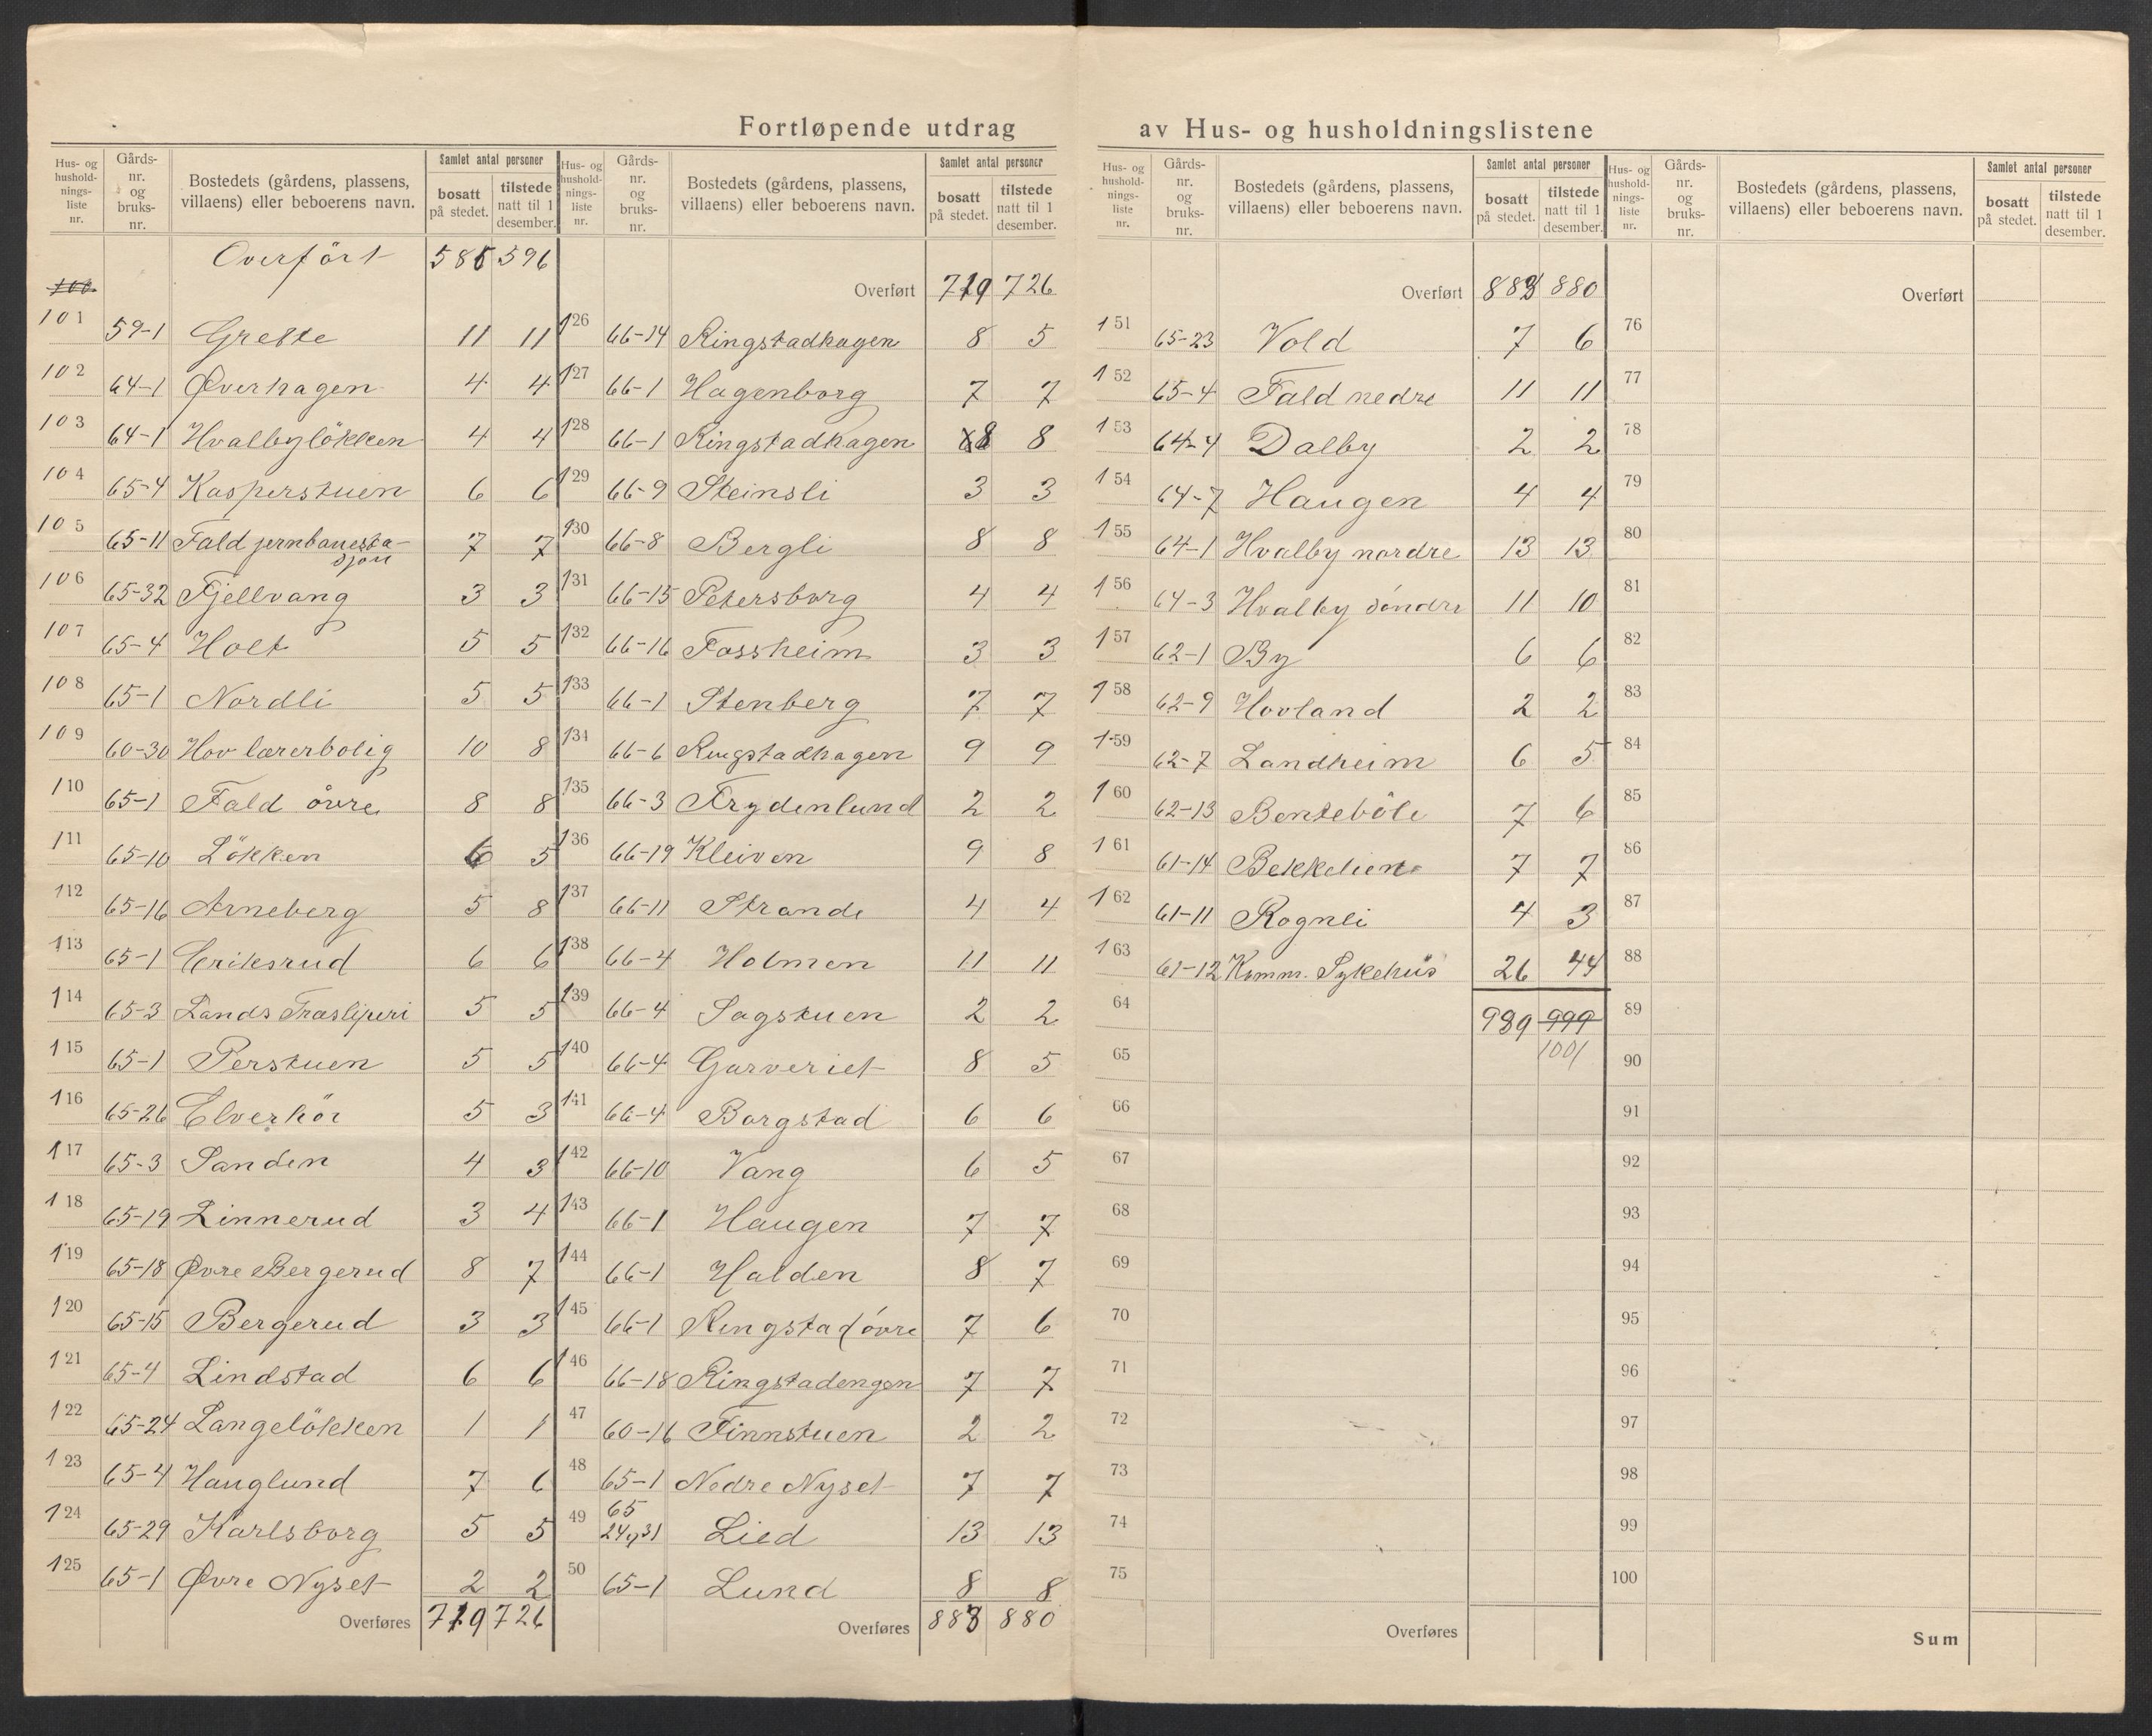 Fortløpende utdrag av Hus- og husholdningslistene
Hus- og hushold-nings-liste nr. | Gårds-nr. og bruks-nr. | Bostedets (gårdens, plassens, villaens) eller beboerens navn. | Samlet antal personer | bosatt på stedet. | tilstede natt til 1 desember.
Overført 585 596
100
101 59-1 Grette 11 11
102 64-1 Øverhagen 4 4
103 64-1 Hvalbylökken 4 4
104 65-4 Kasperstuen 6 6
105 65-11 Fald jernbanesta-
sjon 7 7
106 65-32 Fjellvang 3 3
107 65-4 Holt 5 5
108 65-1 Nordli 5 5
109 60-30 Hov lærerbolig 10 8
110 65-1 Fald övre 8 8
111 65-10 Lökken 6 5
112 65-16 Arneberg 5 8
113 65-1 Eriksrud 6 6
114 65-3 Lands Træsliperi 5 5
115 65-1 Perstuen 5 5
116 65-26 Elverhöi 5 3
117 65-3 Sanden 4 3
118 65-19 Linnerud 3 4
119 65-18 Øvre Bergerud 8 7
120 65-15 Bergerud 3 3
121 65-4 Lindstad 6 6
122 65-24 Langelökken 1 1
123 65-4 Hauglund 7 6
124 65-29 Karlsborg 5 5
125 65-1 Øvre Nyset 2 2
Overføres 719 726
Hus- og hushold-nings-liste nr. | Gårds-nr. og bruks-nr. | Bostedets (gårdens, plassens, villaens) eller beboerens navn. | Samlet antal personer | bosatt på stedet. | tilstede natt til 1 desember.
Overført 719 726
126 66-14 Ringstadhagen 8 5
127 66-1 Hagenborg 7 7
128 66-1 Ringstadhagen 8 8
129 66-9 Steinsli 3 3
130 66-8 Bergli 8 8
131 66-15 Petersborg 4 4
132 66-16 Fossheim 3 3
133 66-1 Stenberg 7 7
134 66-6 Ringstadhagen 9 9
135 66-3 Frydenlund 2 2
136 66-19 Kleiven 9 8
137 66-11 Strande 4 4
138 66-4 Holmen 11 11
139 66-4 Sagstuen 2 2
140 66-4 Garveriet 8 5
141 66-4 Borgstad 6 6
142 66-10 Vang 6 5
143 66-1 Haugen 7 7
144 66-1 Halden 8 7
145 66-1 Ringstad övre 7 6
146 66-18 Ringstadengen 7 7
47 60-16 Finnstuen 2 2
48 65-1 Nedre Nyset 7 7
49 65 24,31 Lied 13 13
50 65-1 Lund 8 8
Overføres 883 880
Hus- og hushold-nings-liste nr. | Gårds-nr. og bruks-nr. | Bostedets (gårdens, plassens, villaens) eller beboerens navn. | Samlet antal personer | bosatt på stedet. | tilstede natt til 1 desember.
Overført 883 880
151 65-23 Vold 7 6
152 65-4 Fald nedre 11 11
153 64-4 Dalby 2 2
154 64-7 Haugen 4 4
155 64-1 Hvalby nordre 13 13
156 64-3 Hvalby söndre 11 10
157 62-1 By 6 6
158 62-9 Hovland 2 2
159 62-7 Landheim 6 5
160 62-13 Benteböle 7 6
161 61-14 Bekkelien 7 7
162 61-11 Rognli 4 3
163 61-12 Komm. Sykehus 26 44
64 989 999
65 1001
66
67
68
69
70
71
72
73
74
75
Overføres
Hus- og hushold-nings-liste nr. | Gårds-nr. og bruks-nr. | Bostedets (gårdens, plassens, villaens) eller beboerens navn. | Samlet antal personer | bosatt på stedet. | tilstede natt til 1 desember.
Overført
76
77
78
79
80
81
82
83
84
85
86
87
88
89
90
91
92
93
94
95
96
97
98
99
100
Sum